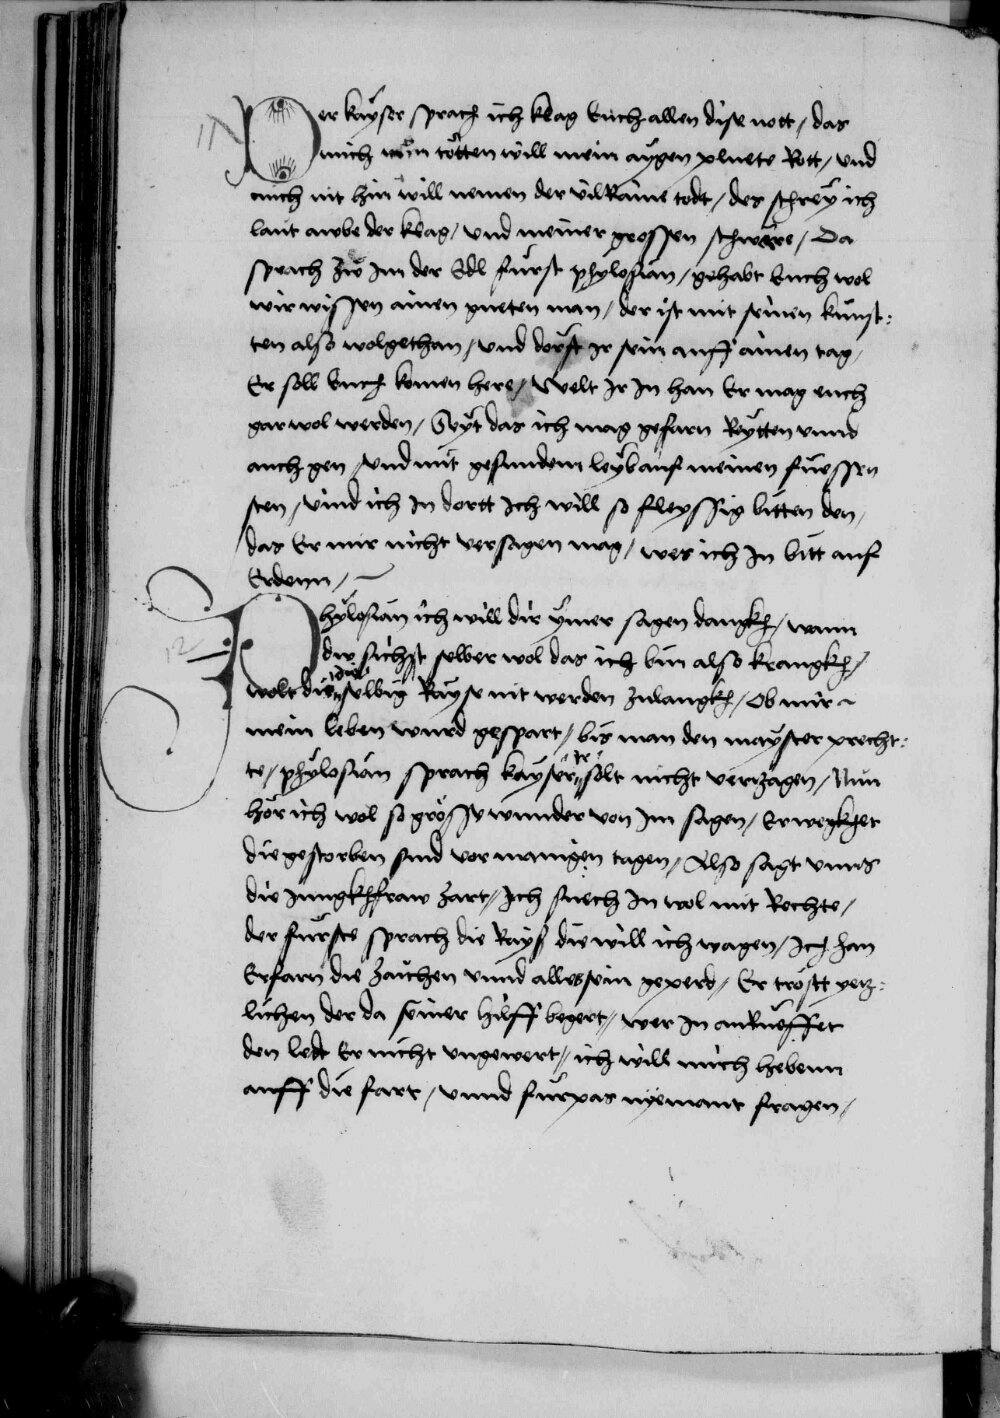 11
Der kayser sprach ich klag Euch allen dise nott / das
mich nun tötten will mein aygen plüete Rott / und
mich nit hin will nemen der vil Raine todt / des schrey ich
laut awbe der klag / und meiner grossen schwäre / Da
sprach Zw Im der Edl fürst phylosian / gehabt Euch wol
wir wissen ainen gueten man / der ist mit seinen künst:
ten also wolgethan / und dorfft Ir sein auff ainen tag /
Er soll Euch komen here / Welt Ir In han Er mag euch
gar wol werden / Seyt das ich mag gefarn Reytten unnd
auch gen / und mit gesundem leyb auf meinen füessen
sten / vind ich In dortt Ich will so fleyssig bitten den /
das Er mir nicht versagen mag / wes ich In bitt auf
Erdenn / ~
12
Phylosian ich will dir ymer sagen dangkh / wann
dw sichst selber wol das ich bin also krangkh /
wolt die selbig Rayse nit werden zulangkh / Ob mir ~
mein leben wurd gespart / bis man den mayster precht:
te / phylosian sprach kayser ir solt nicht verzagen / Nun
hör ich wol so grösse wunder von Im sagen / Er wegkhet
die gestorben sind vor manigen tagen / Also sagt unns
die Jungkhfraw zart / Ich suech In wol mit Rechte /
der fürste sprach die Rayß die will ich wagen / Ich han
Erfarn die Zaichen unnd alles sein geperd / Er tröstt yetz:
lichen der da seiner hilff begert / wer In anRueffet
den lett Er nicht ungewert / ich will mich hebenn
auff die fart / unnd fürpas nyemant fragen /